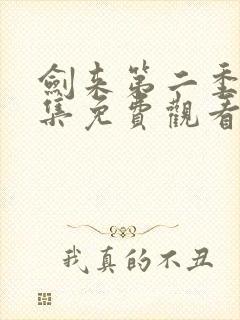 劍來第二季
集免費觀看
我真的不丑